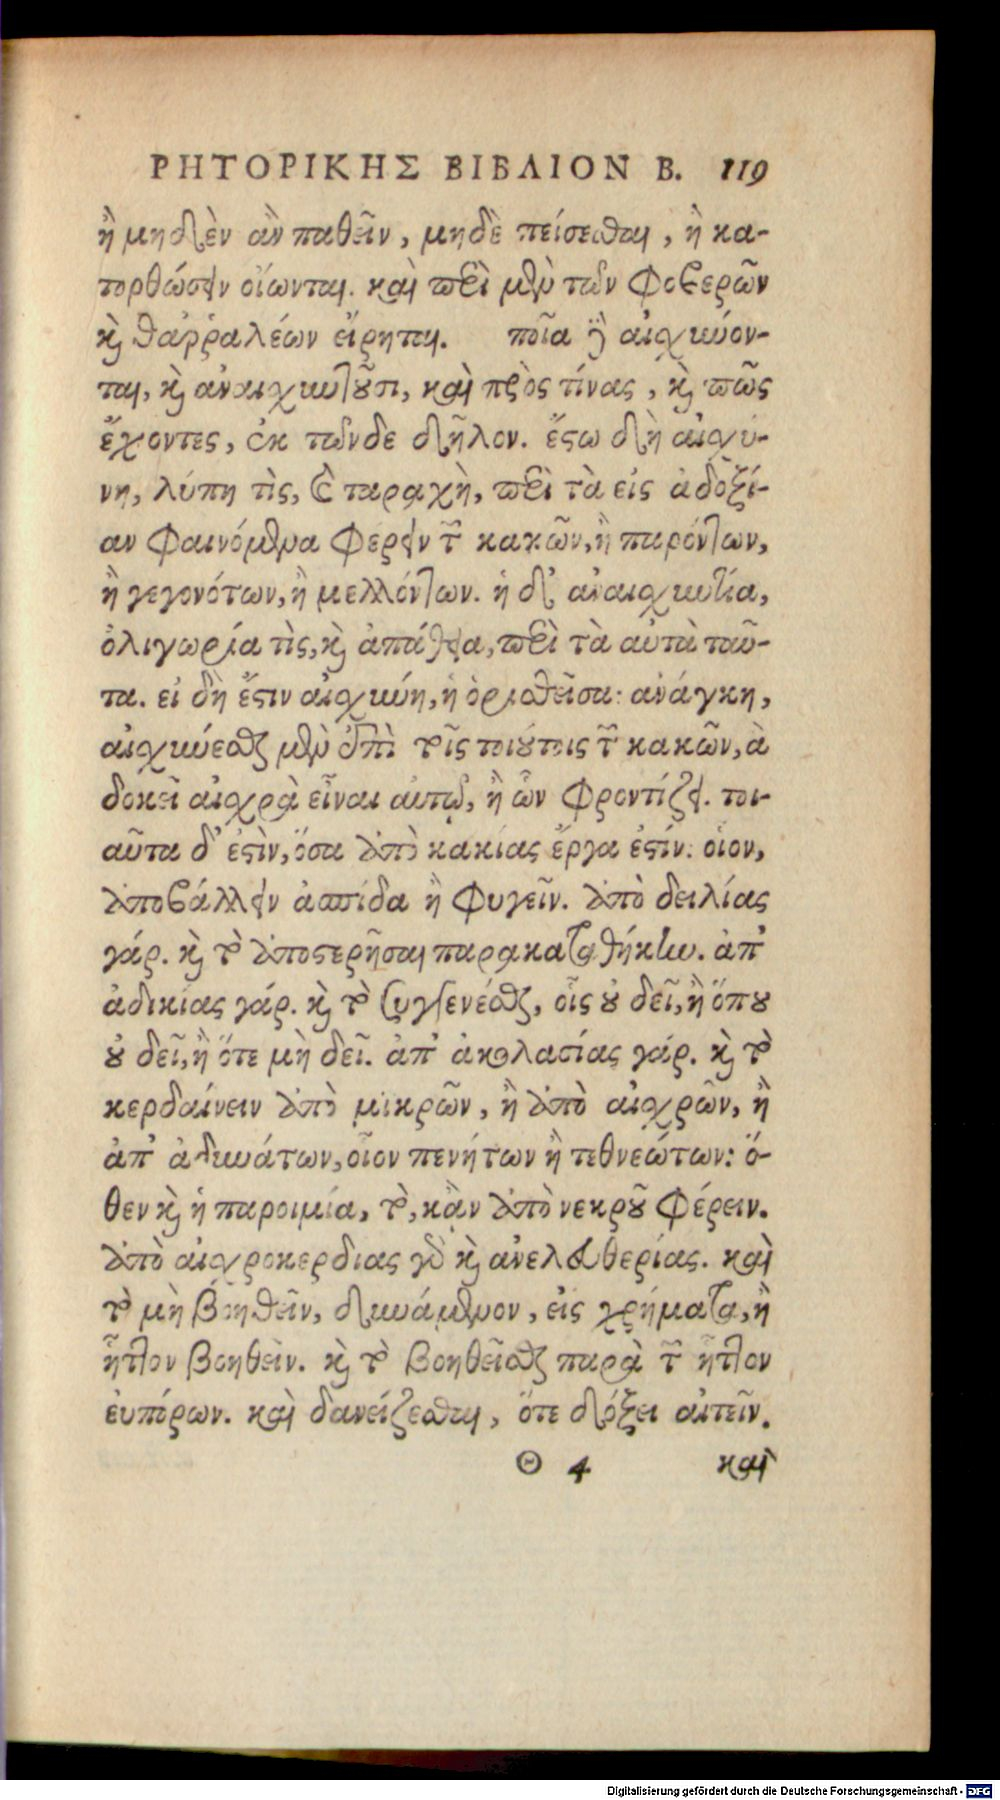 ΡΗΤΟΡΙΚΗΣ ΒΙΒΛΙΟΝ Β. 119
ἢ μηδὲν ἂν παθεῖν, μηδὲ πείσεσθαι, ἢ κα-
τορθώσειν οἴωνται. καὶ περὶ μὲν τῶν φοβερῶν
καὶ θαῤῥαλέων εἴρηται. ποῖα δὲ αἰσχύον-
ται, καὶ ἀναισχυντοῦσι, καὶ πρὸς τίνας, καὶ πῶς
ἔχοντες, ἐκ τῶνδε δῆλον. ἔστω δὴ αἰσχύ-
νη, λύπη τὶς, καὶ ταραχὴ, περὶ τὰ εἰς ἀδοξί-
αν φαινόμενα φέρειν τῶν κακῶν, ἢ παρόντων,
ἢ γεγονότων, ἢ μελλόντων. ἡ δ' ἀναισχυντία,
ὀλιγωρία τὶς, καὶ ἀπάθεια, περὶ τὰ αὐτὰ ταῦ-
τα. εἰ δὴ ἔστιν αἰσχύνη, ἡ ὁρισθεῖσα: ἀνάγκη,
αἰσχύνεσθαι μὲν ἐπὶ τοῖς τοιούτοις τῶν κακῶν, ἃ
δοκεῖ αἰσχρὰ εἶναι αὐτῷ, ἢ ὧν φροντίζει. τοι-
αῦτα δ' ἐστὶν, ὅσα ἀπὸ κακίας ἔργα ἐστίν: οἷον,
ἀποβάλλειν ἀσπίδα ἢ φυγεῖν. ἀπὸ δειλίας
γάρ. καὶ τὸ ἀποστερῆσαι παρακαταθήκην. ἀπ'
ἀδικίας γάρ. καὶ τὸ συγγενέσθαι, οἷς οὐ δεῖ, ἢ ὅπου
οὐ δεῖ, ἢ ὅτε μὴ δεῖ. ἀπ' ἀκολασίας γάρ. καὶ τὸ
κερδαίνειν ἀπὸ μικρῶν, ἢ ἀπὸ αἰσχρῶν, ἢ
ἀπ' ἀδυνάτων, οἷον πενήτων ἢ τεθνεώτων: ὅ-
θεν καὶ ἡ παροιμία, τὸ, κἂν ἀπὸ νεκροῦ φέρειν.
ἀπὸ αἰσχροκερδιας γὰρ καὶ ἀνελευθερίας. καὶ
τὸ μὴ βοηθεῖν, δυνάμενον, εἰς χρήματα, ἢ
ἧττον βοηθεῖν. καὶ τὸ βοηθεῖσθαι παρὰ τῶν ἧττον
ἐυπόρων. καὶ δανείζεσθαι, ὅτε δόξει αἰτεῖν.
Θ 4 καὶ
Digitalisierung gefördert durch die Deutsche Forschungsgemeinschaft - DFG